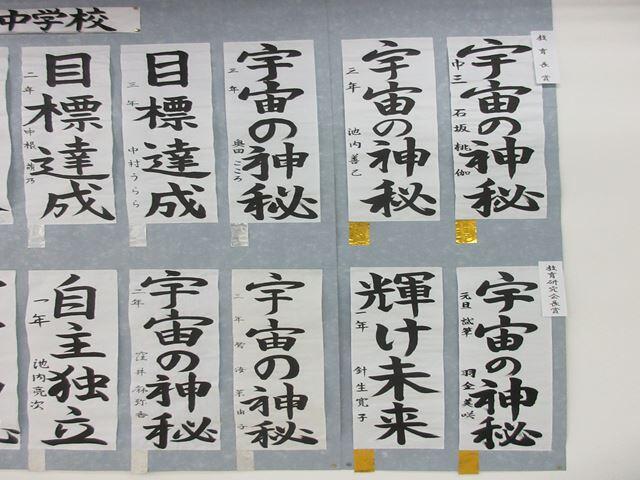 中学校
教育長賞
宇宙の神秘
中三 石坂 桃伽
宇宙の神秘
三年 池内善己
宇宙の神秘
三年 奥田こころ
目標達成
三年 中村うらら
目標達成
二年 中根萌乃
教育研究会長賞
宇宙の神秘
元旦 試筆 羽金美咲
輝け未来
一年 針生寛子
宇宙の神秘
三年
宇宙の神秘
二年 窪井麻弥香
自主独立
一年 池内亮次